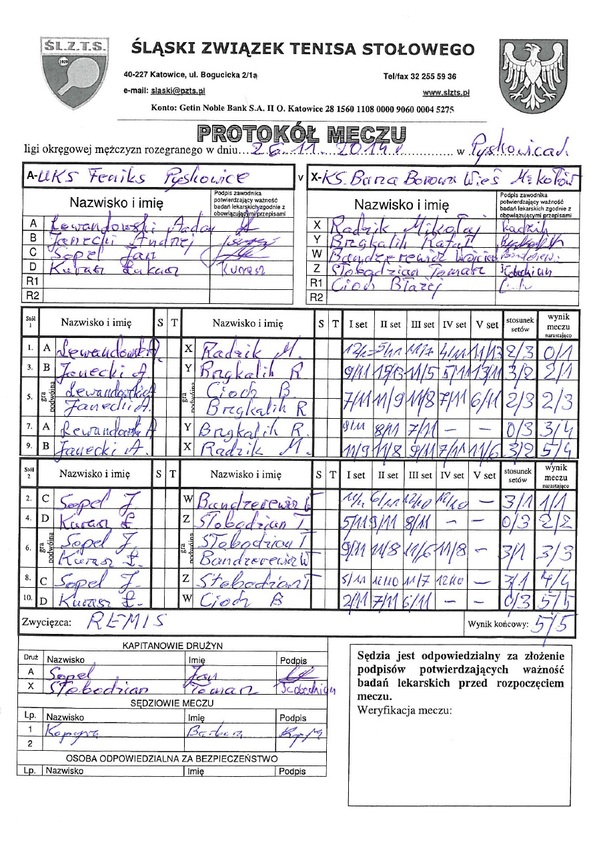 ŚL.Z.T.S.
ŚLĄSKI ZWIĄZEK TENISA STOŁOWEGO
40-227 Katowice, ul. Bogucicka 2/1a Tel/fax 32 255 59 36
e-mail: slaski@pzts.pl www.slzts.pl
Konto: Getin Noble Bank S.A. II O. Katowice 28 1560 1108 0000 9060 0004 5275
PROTOKÓŁ MECZU
ligi okręgowej mężczyzn rozegranego w dniu 26.11.2014r w Pyskowicach
A-UKS Feniks Pyskowice v X-KS. Burza Borowa Wieś Mikołów
Nazwisko i imię Podpis zawodnika potwierdzający ważność badań lekarskich zgodnie z obowiązującymi przepisami Nazwisko i imię Podpis zawodnika potwierdzający ważność badań lekarskich zgodnie z obowiązującymi przepisami
A Lewandowski Adam X Radzik Mikołaj Radzik
B Janecki Andrzej Y Brgkalik Rafał
C Sopel Jan W Bandzerewicz
D Kurasz Łukasz Kurasz Z Słobodzian Tomasz
R1 R1 Cioch Błażej Cioch
R2 R2
Stół 1 Nazwisko i imię S T Nazwisko i imię S T I set II set III set IV set V set stosunek setów wynik meczu narastająco
1. A Lewandowski A X Radzik M 5/11 11/7 4/11 11/13 2/3 0/1
3. B Janecki A. Y Brgkalik R 9/11 11/5 5/11 13/11 3/2 2/1
5. gra podwójna Lewandowski A Janecki A. gra podwójna Cioch B Brgkalik R 7/11 11/9 11/8 7/11 6/11 2/3 2/3
7. A Lewandowski A Y Brgkalik R. 9/11 8/11 7/11 - - 0/3 3/4
9. B Janecki A. X Radzik M. 11/9 11/8 9/11 7/11 11/6 3/2 5/4
Stół 2 Nazwisko i imię S T Nazwisko i imię S T I set II set III set IV set V set stosunek setów wynik meczu narastająco
2. C Sopel J W Bandzerewicz 6/11 12/10 - 3/1 1/1
4. D Kurasz Ł. Z Słobodzian T 5/11 9/11 8/11 - - 0/3 2/2
6. gra podwójna Sopel J. Kurasz Ł. gra podwójna Słobodzian T Bandzerewicz W 9/11 11/8 11/6 11/8 - 3/1 3/3
8. C Sopel J Z Słobodzian T 5/11 12/10 11/7 12/10 - 3/1 4/4
10. D Kurasz Ł. W Cioch B 2/11 7/11 6/11 - - 0/3 5/5
Zwycięzca: REMIS Wynik końcowy: 5/5
KAPITANOWIE DRUŻYN
Druż Nazwisko Imię Podpis
A Sopel Jan
X Słobodzian Tomasz Słobodzian
SĘDZIOWIE MECZU
Lp. Nazwisko Imię Podpis
1 Barbara
2
OSOBA ODPOWIEDZIALNA ZA BEZPIECZEŃSTWO
Lp. Nazwisko Imię Podpis
Sędzia jest odpowiedzialny za złożenie
podpisów potwierdzających ważność
badań lekarskich przed rozpoczęciem
meczu.
Weryfikacja meczu: